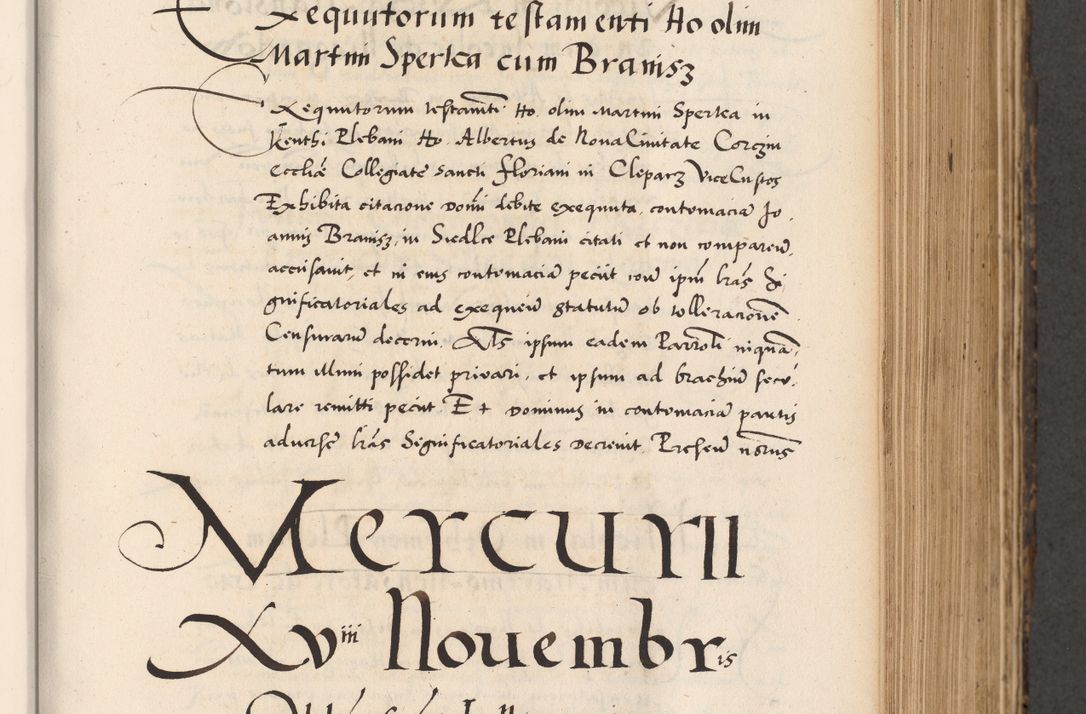 Exequutorum testamenti Ho olim
Martini Sperlca cum Branisz
Exequutorum testamti Ho. olim Martini Sperlca in
Kenthi Plebani Ho Albertus de Noua Ciuitate Corczin
eccliē Collegiate sancti Floriani in Cleparz ViceCustos
Exhibita citacione domi debite exequuta, contomaciā Jo
annis Branisz, in Siedlce Plebani citati et non comparen.
accusauit, et in eius contomaciā peciit
gnificatoriales ad statutū ob tolleracionē
Censurarū decerni. Als ipsum eadem
tum illum possidet priuari, et ipsum ad brachiū secu
lare remitti peciit Et dominus in contomaciā partis
aduerse lrās Significatoriales decreuit.
Mercurii
Xviii Nouembris